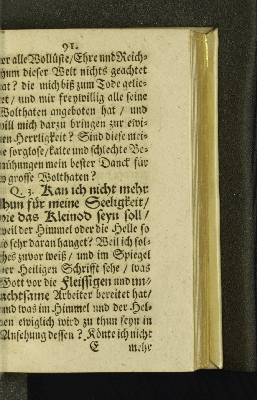 91.
er alle Wollüste/ Ehre und Reich-
hum dieser Welt nichts geachtet
at? die mich biß zum Tode gelie-
et/ und mir freywillig alle seine
Wolthaten angeboten hat / und
will mich darzu bringen zur ewi-
en Herrligkeit? Sind diese mei-
e sorglose/ kalte und schlechte Be-
mühungen mein bester Danck für
o grosse Wolthaten?
Q. 3. Kan ich nicht mehr
thun für meine Seeligkeit/
die das Kleinod seyn soll/
weil der Himmel oder die Helle so
o sehr daran hanget? Weil ich sol-
ches zuvor weiß/ und im Spiegel
er Heiligen Schrifft sehe / was
Gott vor die Fleissigen und un-
achtsame Arbeiter bereitet hat/
und was im Himmel und der Hel-
en ewiglich wird zu thun seyn in
Ansehung dessen? Könte ich nicht
E mehr